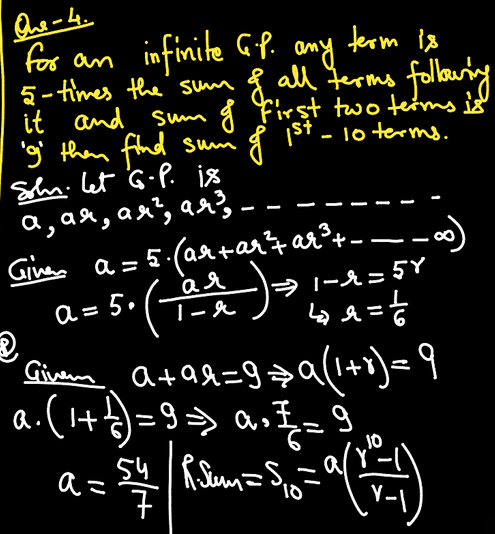 Que-4.
for an infinite G.P. any term is
5-times the sum of all terms following
it and sum of First two terms is
'9' then find sum of 1st - 10 terms.
Soln. Let G.P. is
a, ar, ar², ar³, - - - - - - - - -
Given a = 5.(ar+ar²+ar³+- - - - ∞)
a = 5.(ar/(1-r)) ⇒ 1-r = 5r
↳ r = 1/6
Given a+ar=9 ⇒ a(1+r) = 9
a.(1+1/6) = 9 ⇒ a. 7/6 = 9
a = 54/7 | R.Sum = S₁₀ = a((r¹⁰-1)/(r-1))